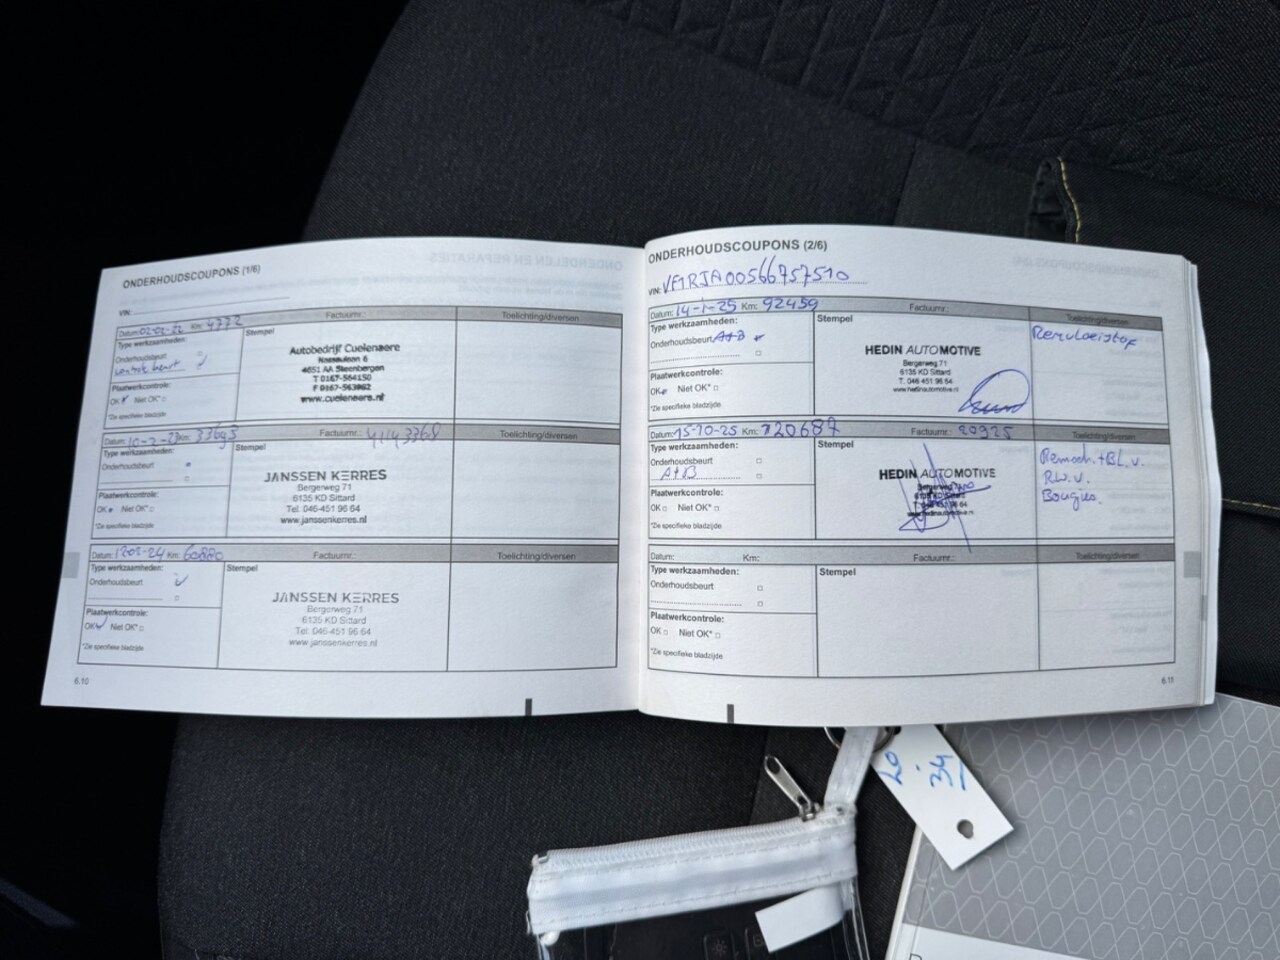 ONDERHOUDSCOUPONS (1/6)
VIN:
Datum: 02-02-22 Km: 4772 Factuurnr.: Toelichting/diversen
Type werkzaamheden:
Onderhoudsbeurt
Plaatwerkcontrole:
OK Niet OK*
*Zie specifieke bladzijde
Stempel
Autobedrijf Cuelenaere
4651 AA Steenbergen
T 0167-564150
www.cuelenaere.nl
Datum: 10-2-23 Km: 33693 Factuurnr.: 41143368 Toelichting/diversen
Type werkzaamheden:
Onderhoudsbeurt
Plaatwerkcontrole:
OK Niet OK*
*Zie specifieke bladzijde
Stempel
JANSSEN KERRES
Bergerweg 71
6135 KD Sittard
Tel. 046-451 96 64
www.janssenkerres.nl
Datum: Km: 60880 Factuurnr.: Toelichting/diversen
Type werkzaamheden:
Onderhoudsbeurt
Plaatwerkcontrole:
OK Niet OK*
*Zie specifieke bladzijde
Stempel
JANSSEN KERRES
Bergerweg 71
6135 KD Sittard
Tel. 046-451 96 64
www.janssenkerres.nl
6.10
ONDERHOUDSCOUPONS (2/6)
VIN: VF1RJA00566757510
Datum: 14-1-25 Km: 92459 Factuurnr.: Toelichting/diversen
Type werkzaamheden:
Onderhoudsbeurt A+B
Plaatwerkcontrole:
OK Niet OK*
*Zie specifieke bladzijde
Stempel
HEDIN AUTOMOTIVE
Bergerweg 71
6135 KD Sittard
T. 046 451 96 64
www.hedinautomotive.nl
Remvloeistof
Datum: 15-10-25 Km: 120687 Factuurnr.: 20925 Toelichting/diversen
Type werkzaamheden:
Onderhoudsbeurt
A+B
Plaatwerkcontrole:
OK Niet OK*
*Zie specifieke bladzijde
Stempel
HEDIN AUTOMOTIVE
R.W.V.
Bougies.
Datum: Km: Factuurnr.: Toelichting/diversen
Type werkzaamheden:
Onderhoudsbeurt
Plaatwerkcontrole:
OK Niet OK*
*Zie specifieke bladzijde
Stempel
6.11